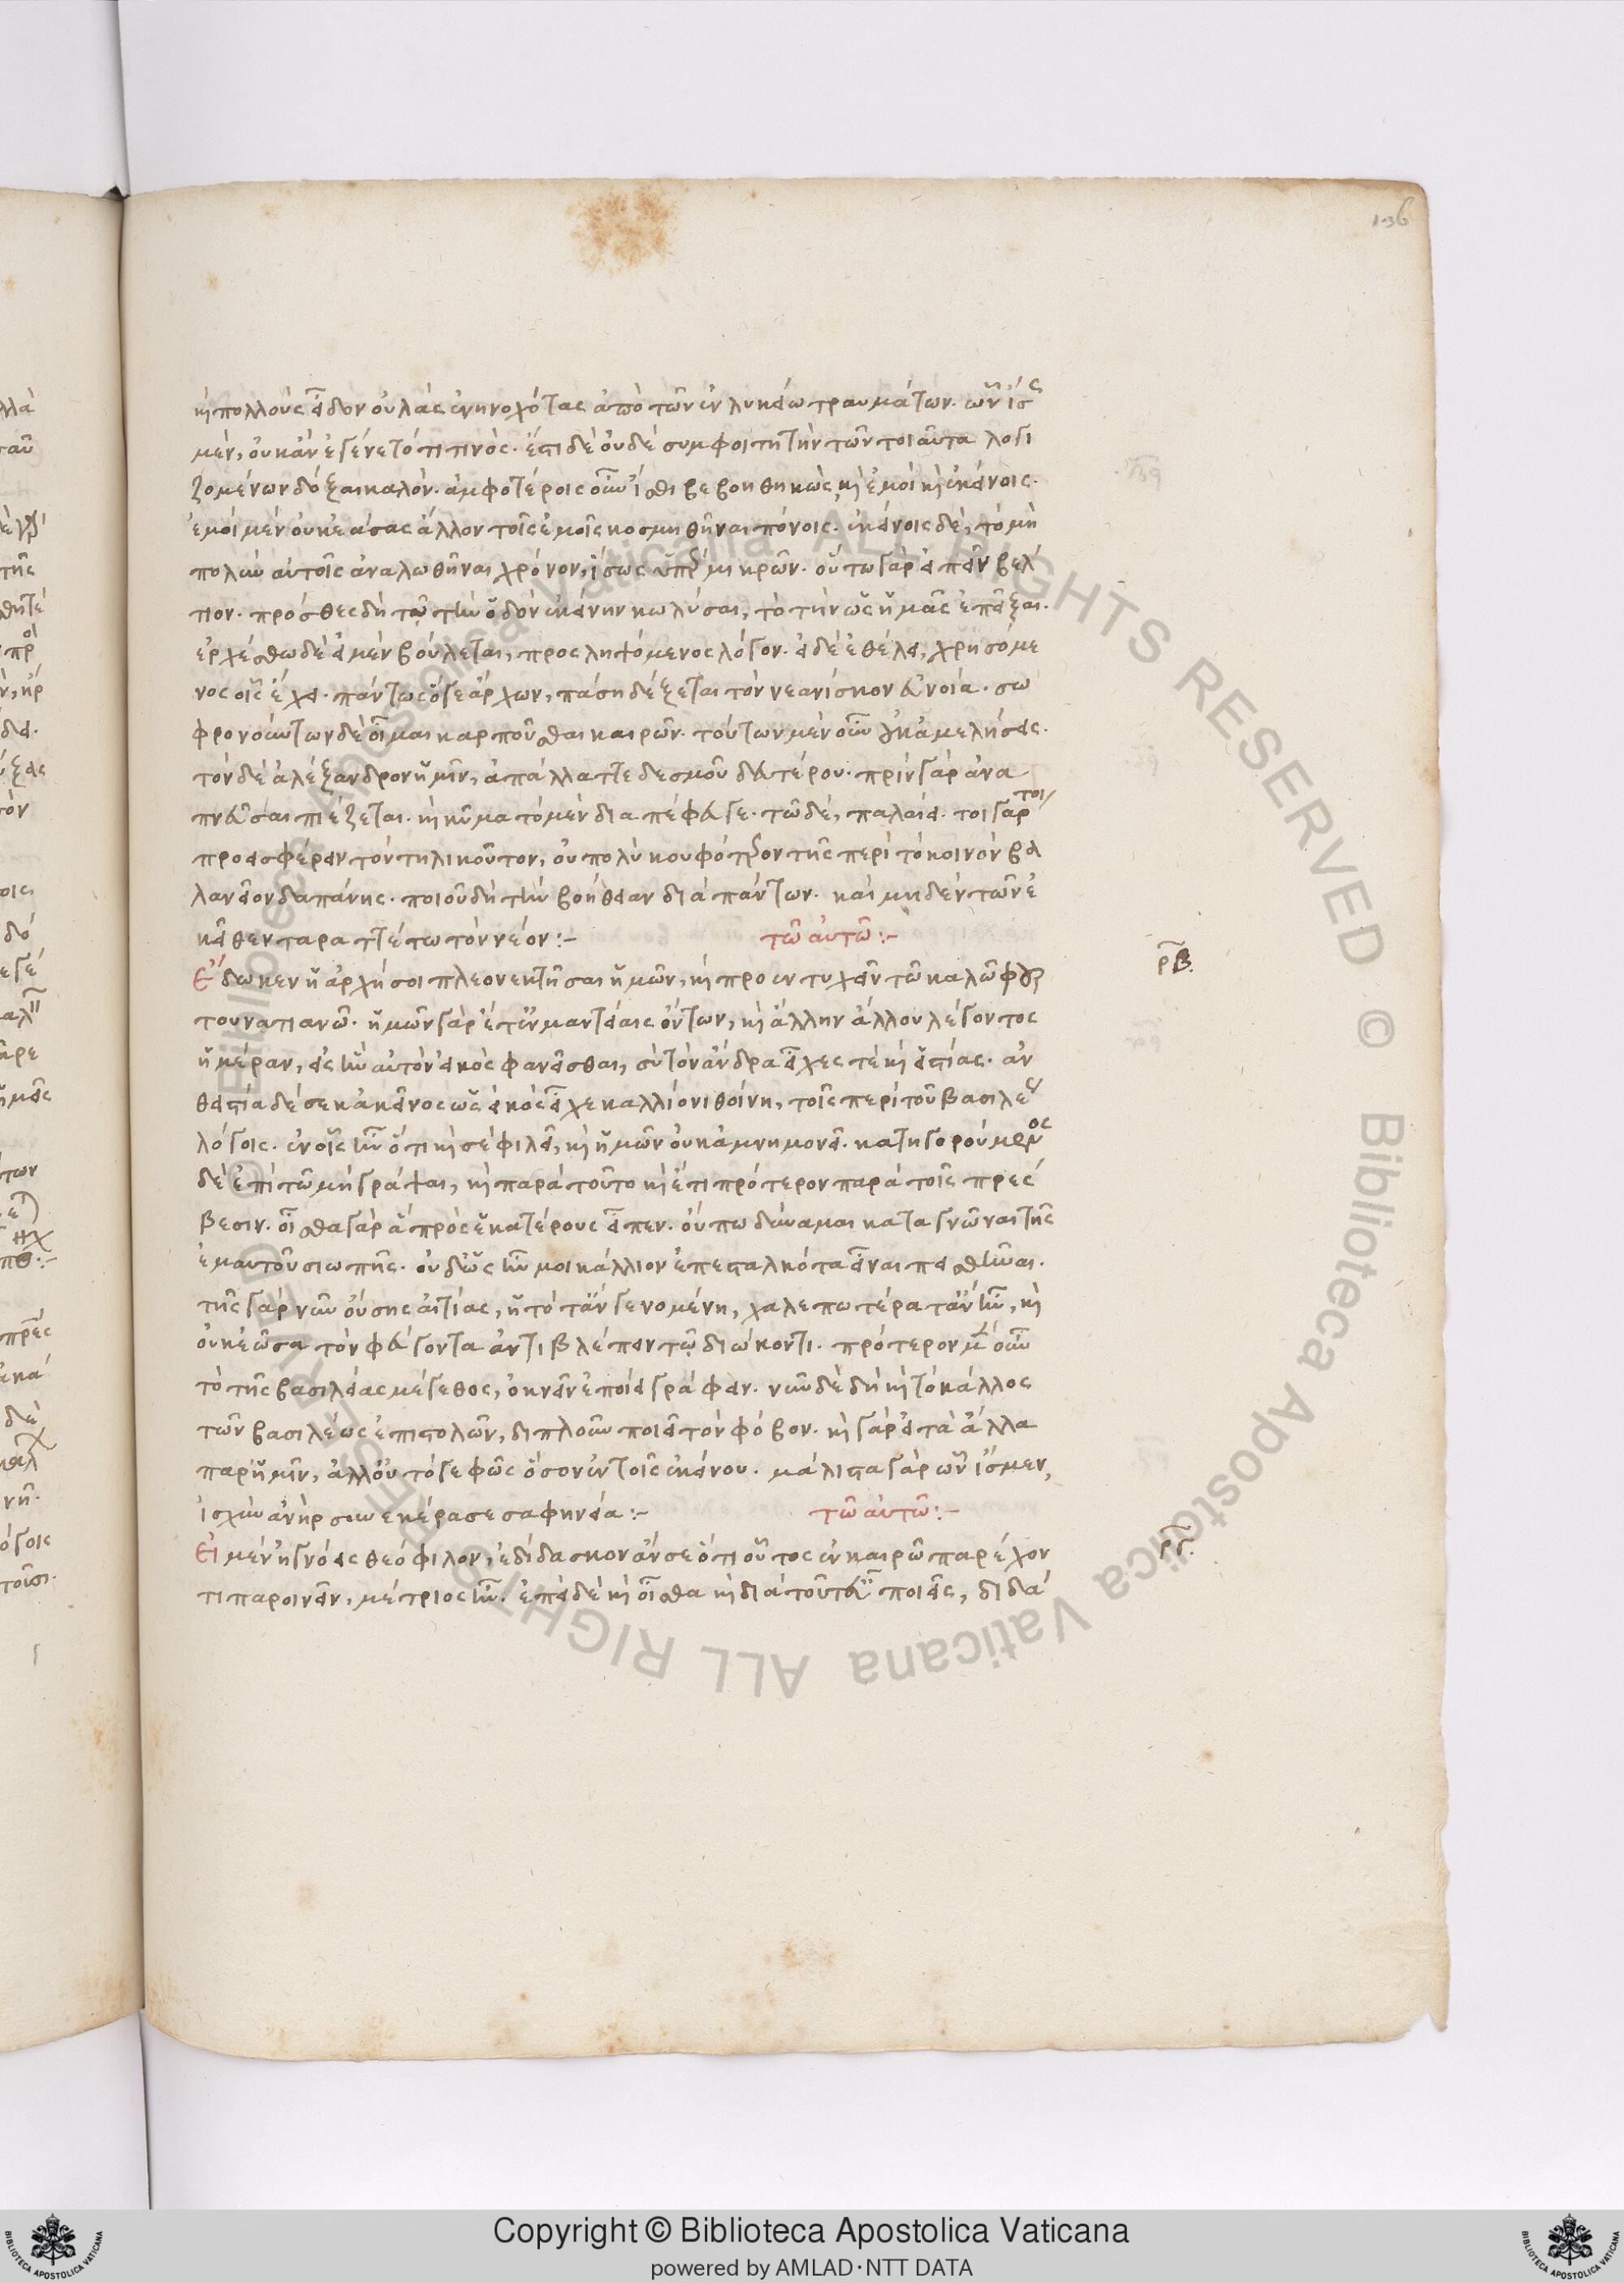 136
καὶ πολλοὺς εἶδον οὐλὰς ἐνηνοχότας ἀπὸ τῶν ἐν λυκείω τραυμάτων. ὧν ἴσ
μὲν, οὐκ ἂν ἐγένετό τι τινὸς. ἔτι δὲ οὐδὲ συμφοιτητὴν τῶν τοιαῦτα λογι
ζομένων δόξαι καλόν. ἀμφοτέροις οὖν ἴσθι βεβοηθηκὼς, καὶ ἐμοὶ καὶ ἐκείνοις.
ἐμοὶ μὲν οὐκ ἐάσας ἄλλον τοῖς ἐμοῖς κοσμηθῆναι πόνοις. ἐκείνοις δὲ, τὸ μὴ
πολὺν αὐτοῖς ἀναλωθῆναι χρόνον, ἴσως ὑπὲρ μικρῶν. οὕτω γὰρ εἰπεῖν βέλ
τιον. πρόσθες δὴ τῷ τὴν ὁδὸν ἐκείνην κωλύσαι, τὸ τὴν ὡς ἡμᾶς ἐπεῖξαι.
ἐρχέσθω δὲ εἰ μὲν βούλεται, προσληψόμενος λόγον. εἰ δὲ ἐθέλει, χρησόμε
νος οἷς ἔχει. πάντως ὅ γε ἄρχων, πάση δέξεται τὸν νεανίσκον εὐνοία. σω
φρονούντων δὲ οἶμαι καρποῦσθαι καιρῶν. τούτων μὲν οὖν οὐκ ἀμελήσεις.
τὸν δὲ ἀλέξανδρον ἡμῖν, ἀπάλλαττε δεσμοῦ δευτέρου. πρὶν γὰρ ἀνα
πνεῦσαι πιέζεται. καὶ κῦμα τὸ μὲν διαπέφευγε. τῶ δὲ, παλαίει. τοιγαρτοι
προεισφέρειν τὸν τηλικοῦτον, οὐ πολὺ κουφότερον τῆς περὶ τὸ κοινὸν βα
λανεῖον δαπάνης. ποιοῦ δὴ τὴν βοήθειαν διὰ πάντων. καὶ μηδὲν τῶν ἐ
κεῖθεν ταραττέτω τὸν νέον:-
τῶ αὐτῶ:-
ρβ.
Ἔδωκεν ἡ ἀρχή σοι πλεονεκτῆσαι ἡμῶν, καὶ προεντυχεῖν τῶ καλῶ φορ
τουνατιανῶ. ἡμῶν γὰρ ἔτι ἐν μαντείαις ὄντων, καὶ ἄλλην ἄλλου λέγοντος
ἡμέραν, εἰς ἣν αὐτὸν εἰκὸς φανεῖσθαι, σὺ τὸν ἄνδρα εἶχές τε καὶ εἱστίας. ἀν
θειστία δέ σε κἀκεῖνος ὡς εἰκὸς εἶχε καλλίονι θοίνη, τοῖς περὶ τοῦ βασιλέως
λόγοις. ἐν οἷς ἦν ὅτι καὶ σὲ φιλεῖ, καὶ ἡμῶν οὐκ ἀμνημονεῖ. κατηγορούμενος
δὲ ἐπὶ τῶ μὴ γράψαι, καὶ παρὰ τοῦτο καὶ ἔτι πρότερον παρὰ τοῖς πρέσ
βεσιν. οἶσθα γὰρ ἃ πρὸς ἑκατέρους εἶπεν. οὔπω δύναμαι καταγνῶναι τῆς
ἐμαυτοῦ σιωπῆς. οὐδ' ὡς ἦν μοι κάλλιον ἐπεσταλκότα εἶναι πεισθῆναι.
τῆς γὰρ νῦν οὔσης αἰτίας, ἡ τότ' ἂν γενομένη, χαλεπωτέρα τἂν ἦν, καὶ
οὐκ ἐῶσα τὸν φεύγοντα ἀντιβλέπειν τῷ διώκοντι. πρότερον μὲν οὖν
τὸ τῆς βασιλείας μέγεθος, ὀκνεῖν ἐποίει γράφειν. νῦν δὲ δὴ καὶ τὸ κάλλος
τῶν βασιλέως ἐπιστολῶν, διπλοῦν ποιεῖ τὸν φόβον. καὶ γὰρ εἰ τὰ ἄλλα
παρ' ἡμῖν, ἀλλ' οὐ τό γε φῶς ὅσον ἐν τοῖς ἐκείνου. μάλιστα γὰρ ὧν ἴσμεν,
ἰσχὺν ἀνὴρ συνεκέρασε σαφηνεία:-
τῶ αὐτῶ:-
ργ.
Εἰ μὲν ἠγνόεις θεόφιλον, ἐδίδασκον ἄν σε ὅτι οὗτος ἐν καιρῶ παρέχον
τι παροινεῖν, μέτριος ἦν. ἐπεὶ δὲ καὶ οἶσθα καὶ διὰ τοῦτ' εὖ ποιεῖς, διδά